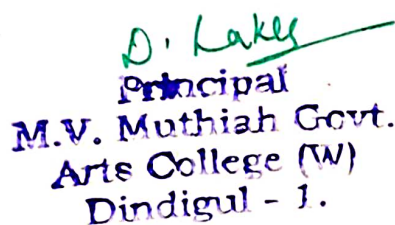 D. Lakes
Principal
M.V. Muthiah Govt.
Arts College (W)
Dindigul - 1.